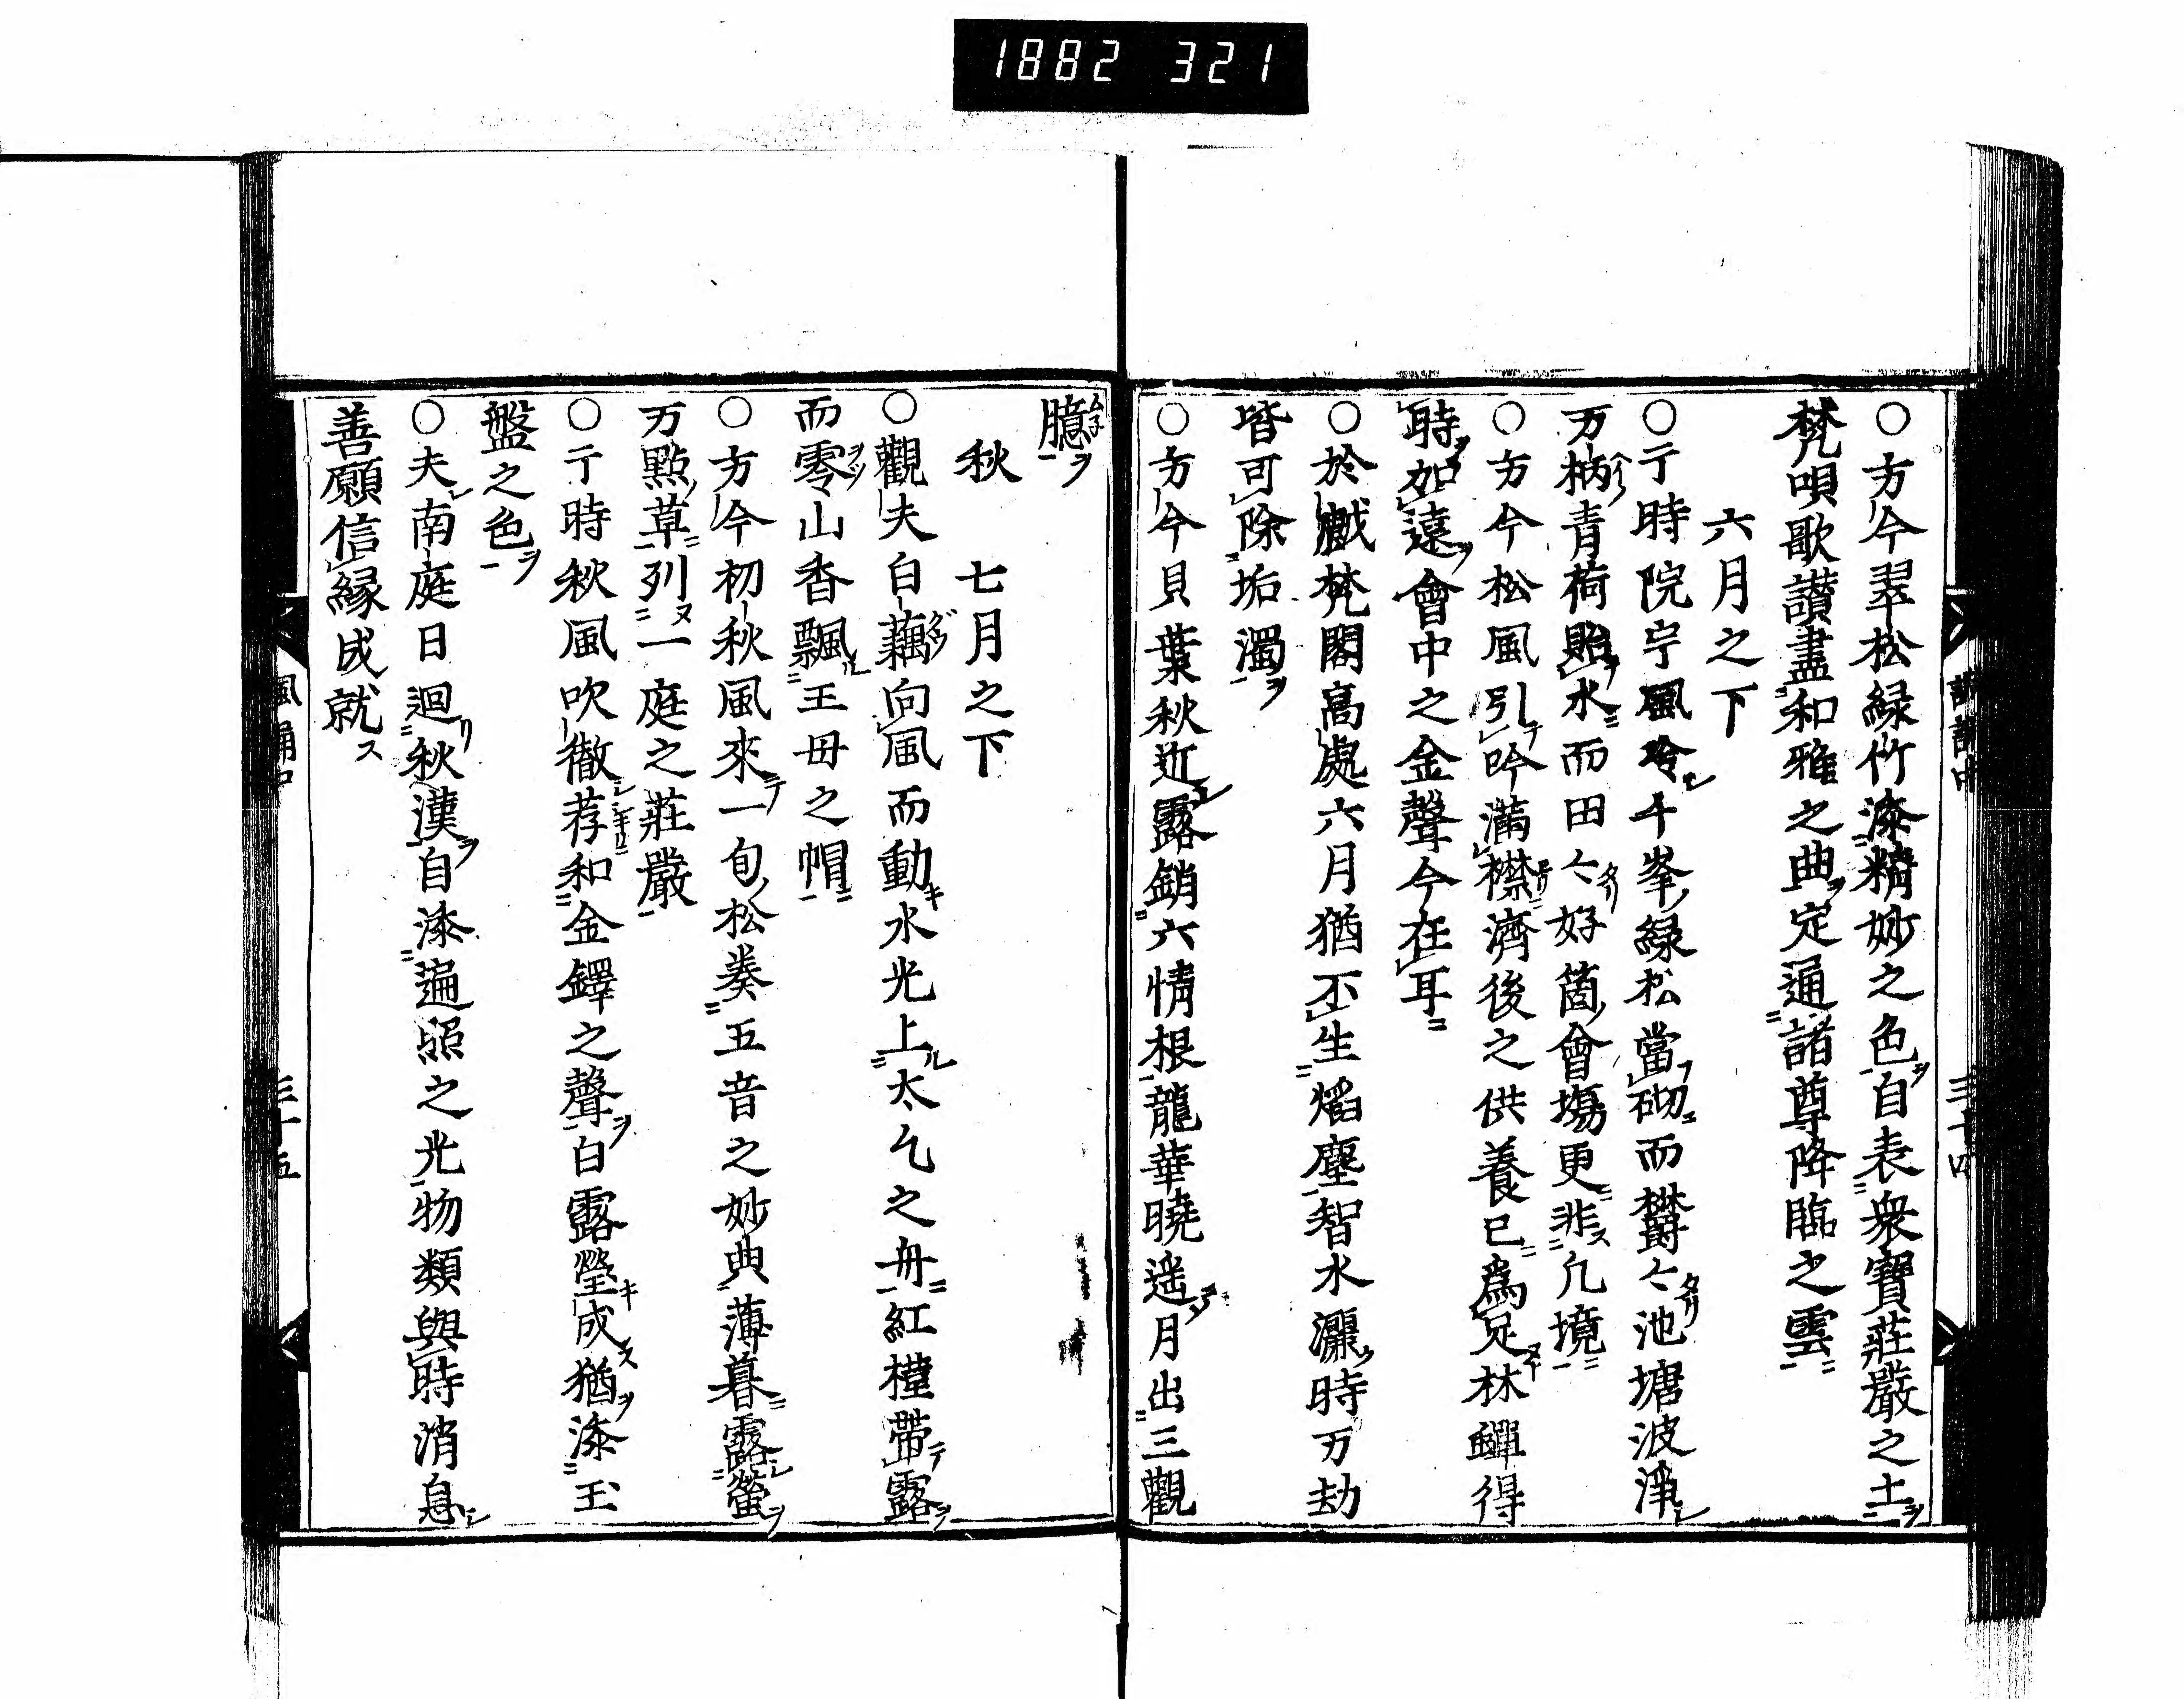 1882 321
○方今翠松緑竹漆精妙之色自表衆寶莊嚴之土
梵唄歌讃盡和雅之曲定通諸尊降臨之雲
六月之下
○亍時院宇風冷千峯緑松當砌而欝〻池塘波淨
万柄青荷貼水而田〻好箇會塲更非凡境
○方今松風引吟滿襟濟後之供養已爲足林蟬得
時如遠會中之金聲今在耳
○於戯梵閣高處六月猶不生熖塵智水灑時万劫
皆可除垢濁
○方今貝葉秋近露銷六情根龍華曉遥月出三觀
三十四
臆
秋　七月之下
○觀夫白藕向風而動水光上太乞之舟紅槿帶露
而零山香飄王母之帽
○方今初秋風來一旬松奏五音之妙典薄暮露螢
万點草列一庭之莊嚴
○亍時秋風吹徹荐和金鐸之聲白露瑩成猶漆玉
盤之色
○夫南庭日迴秋漢自漆遍照之光物類與時消息
善願信縁成就
三十五